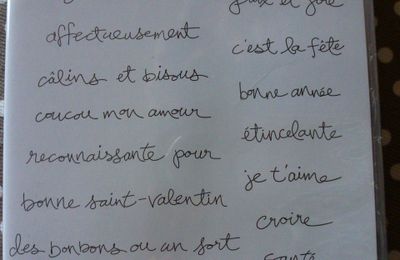 affectueusement
câlins et bisous
coucou mon amour
reconnaissante pour
bonne saint-valentin
des bonbons ou un sort
paix et joie
c'est la fête
bonne année
étincelante
je t'aime
croire
santé